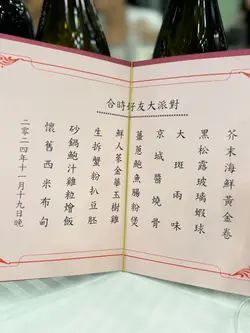 合時好友大派對
芥末海鮮黃金卷
黑松露玻璃蝦球
大斑兩味
京城醬燒骨
薑蔥鮑魚腸粉煲
鮮人蔘金華玉樹雞
生拆蟹粉扒豆胚
砂鍋鮑汁雞粒燴飯
懷舊西米布甸
二零二四年十一月十九日晚